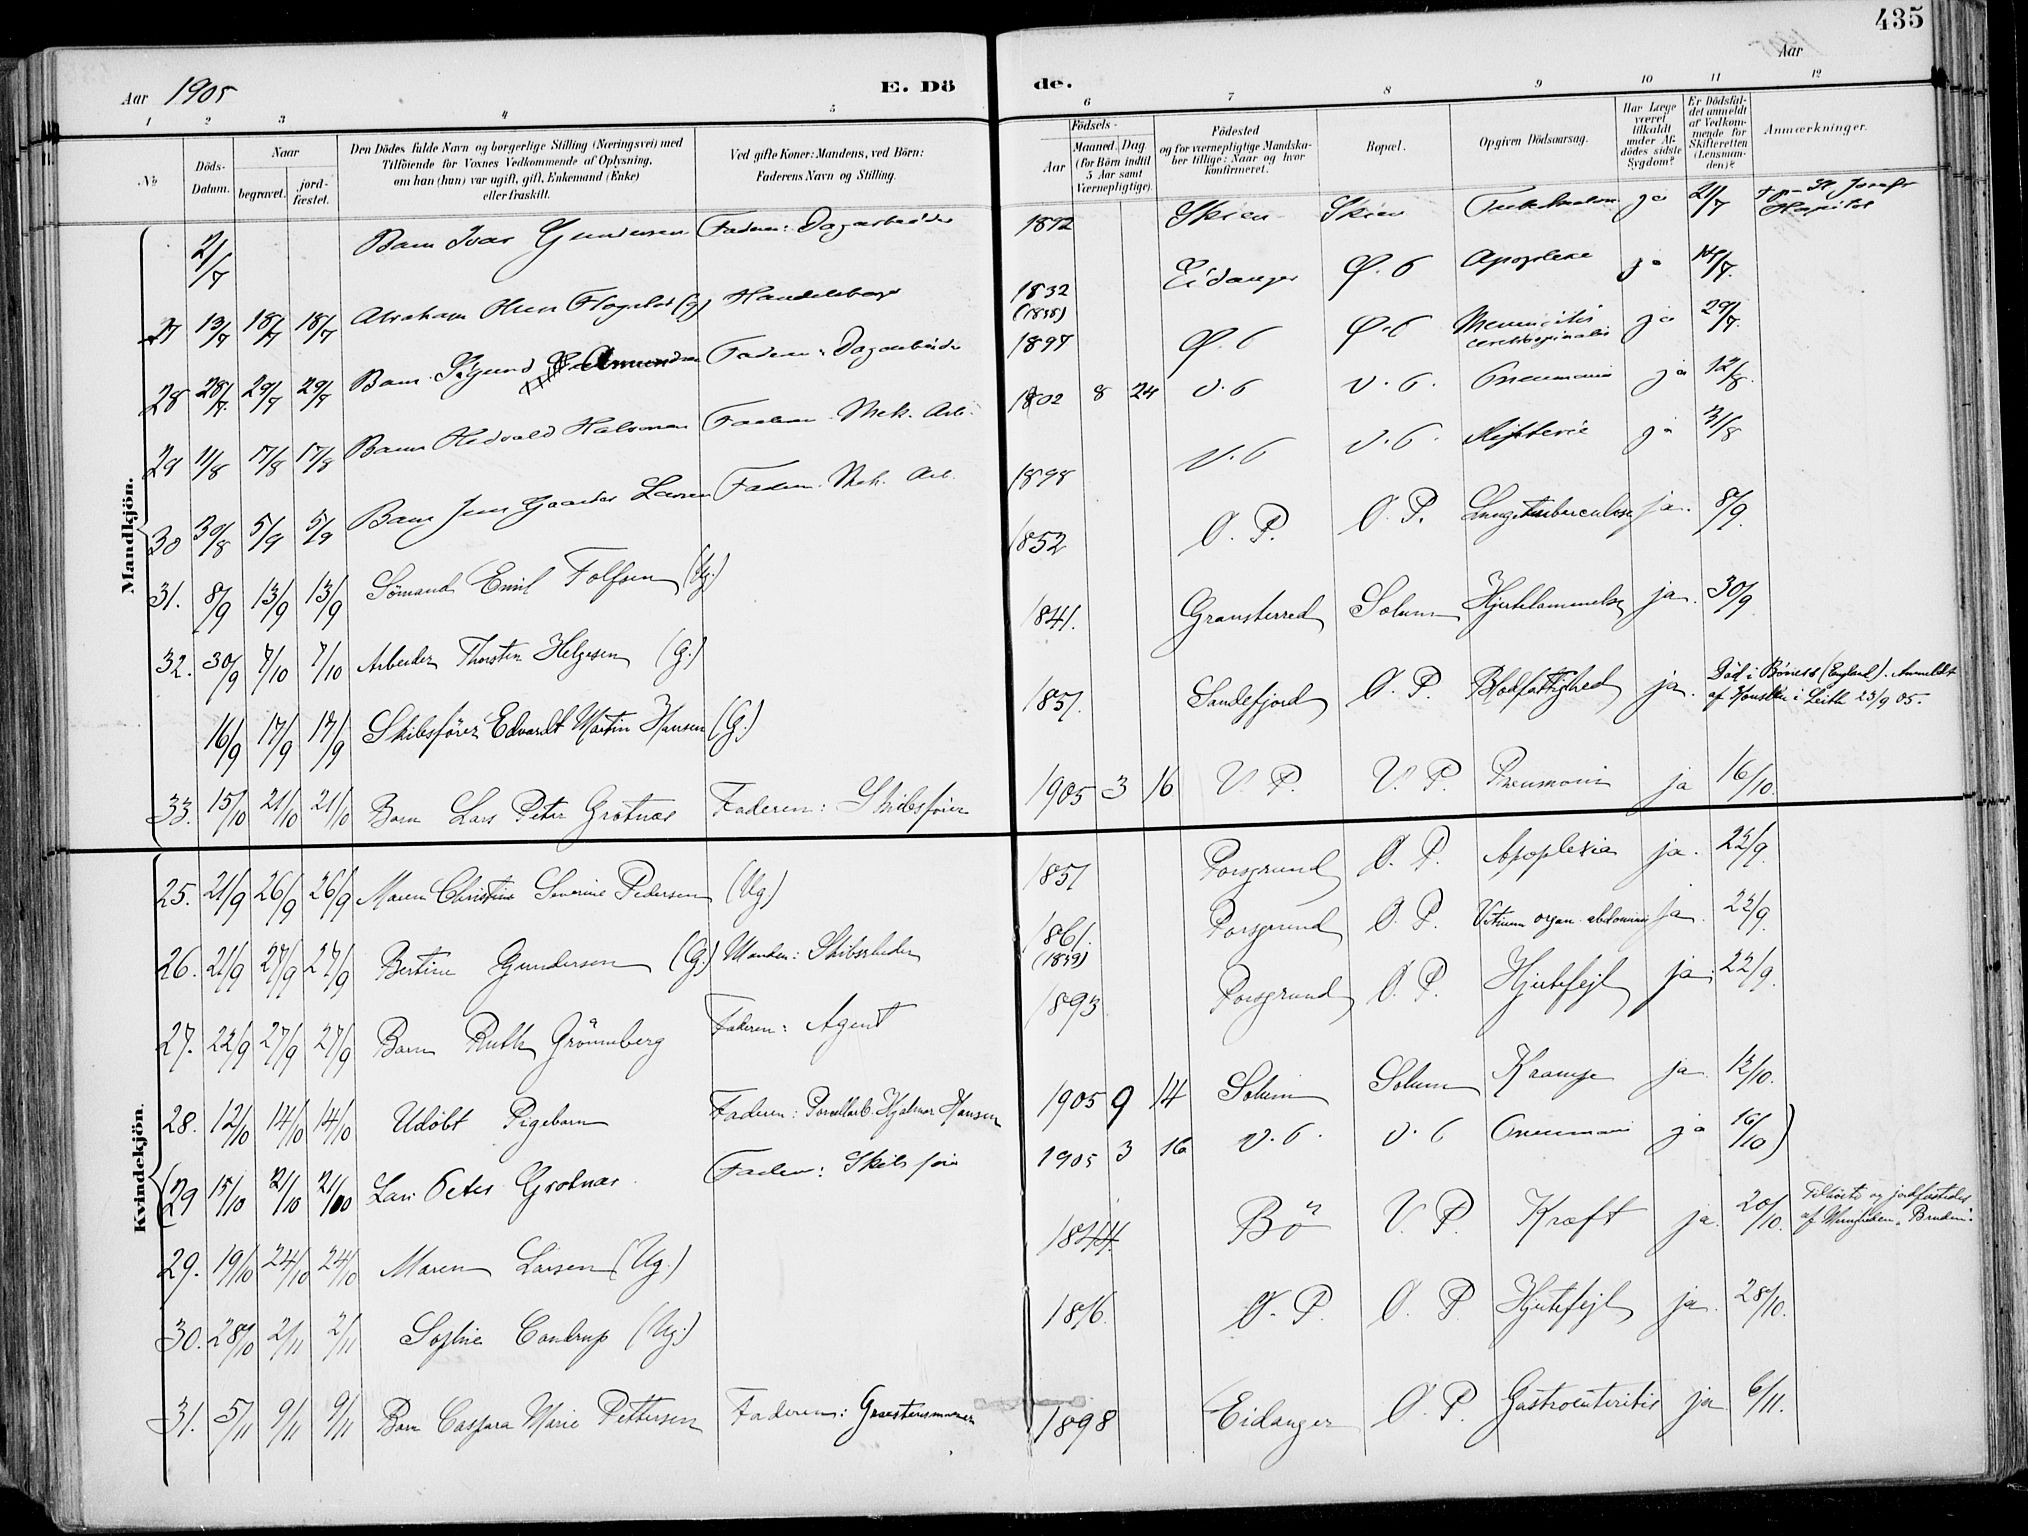 435
Aar 1905
E. Dö
de.
Aar
1 2 3 4 5 6 7 8 9 10 11 12
No
Döds-Datum.
Naar
begravet.
jord-fæstet.
Den Dödes fulde Navn og borgerlige Stilling (Næringsvei) med
Tilföiende for Voxnes Vedkommende af Oplysning,
om han (hun) var ugift, gift, Enkemand (Enke)
eller fraskilt.
Ved gifte Koner: Mandens, ved Börn:
Faderens Navn og Stilling.
Födsels-
Aar
Maaned. Dag
(for Börn indtil
5 Aar samt
Værnepligtige).
Födested
og for værnepligtige Mandska-
ber tillige: Naar og hvor
konfirmeret.
Bopæl.
Opgiven Dödsaarsag.
Har Læge
været
tilkaldt
under Af-
dödes sidste
Sygdom?
Er Dödsfal-
det anmeldt
af Vedkom-
mende for
Skifteretten
(Lensman-
den)?
Anmærkninger.
Mandkjön.
21/7 Barn Ivar Gundersen Faderen: Dagarbeider Skien Skien ja 21/7 St. Josefs Hospital
27 13/7 18/7 18/7 Abraham Olsen (g) 1832 (1838) Eidanger Ø. P Apoplexie ja 14/7
28 28/7 29/7 29/7 Barn Sigurd Amundsen Faderen: Dagarbeider 1897 Ø. P Ø. P Meningitis cerebrospinalis ja 29/7
29 11/8 17/8 17/8 Barn Hedvald Halvorsen Faderen Mek. Arb. 1902 8 24 V. P V. P. Pneumonia ja 12/8
30 30/8 5/9 5/9 Barn Jens Gaarder Larsen Faderen Mek. Arb. 1898 V. P V. P. Difterie ja 31/8
31. 8/9 13/9 13/9 Sømand Emil Tolfsen (Ug.) 1852 Ø. P. Ø. P. Lungetuberculose ja. 8/9.
32. 30/9 7/10 7/10 Arbeider Thorsten Helgesen (G.) 1841. Gransherred Solum Hjertelammelse ja. 30/9
16/9 17/9 17/9 Skibsfører Edvardt Martin Hansen (G.) 1857. Sandefjord Ø. P. Blodfattighed ja. Død i Bones (England). Anmeldt
af Konsulen i Leith 23/9 05.
33. 15/10 21/10 21/10 Barn Lars Peter Grotnæs Faderen: Skibsfører 1905 3 16 V. P. V. P. Pneumoni ja 16/10.
Kvindekjön.
25. 21/9 26/9 26/9 Maren Christine Severine Pedersen (Ug.) 1851 Porsgrund Ø. P. Apoplexia ja. 22/9.
26. 21/9 27/9 27/9 Bertine Gundersen (G.) Manden: Skibsreder 1861. (1859) Porsgrund Ø. P. Vitium organ. abdominis ja. 22/9.
27. 22/9 27/9 27/9 Barn Ruth Grönneberg Faderen: Agent 1893 Porsgrund Ø. P. Hjertefejl ja. 22/9.
28. 12/10 14/10 14/10 Udøbt Pigebarn Faderen: Porcellarb. Hjalmar Hansen 1905 9 14 Solum Solum Krampe ja. 12/10.
(29 15/10 21/10 21/10 Lars Peter Grotnæs Faderen: Skibsfører 1905 3 16 V. P. V. P Pneumoni ja 16/10)
29. 19/10 24/10 24/10 Maren Larsen (Ug.) 1844. Bö V. P. Kræft ja. 20/10. Tilhørte og jordfæstedes
af Menigheden
30. 28/10 2/11 2/11 Sophie Coudrup (Ug.) 1876. Ø. P. Ø. P Hjertefejl ja. 28/10.
31. 5/11 9/11 9/11 Barn Caspara Marie Pettersen Faderen: 1898 Eidanger Ø. P. Gastroenteritis ja 6/11.